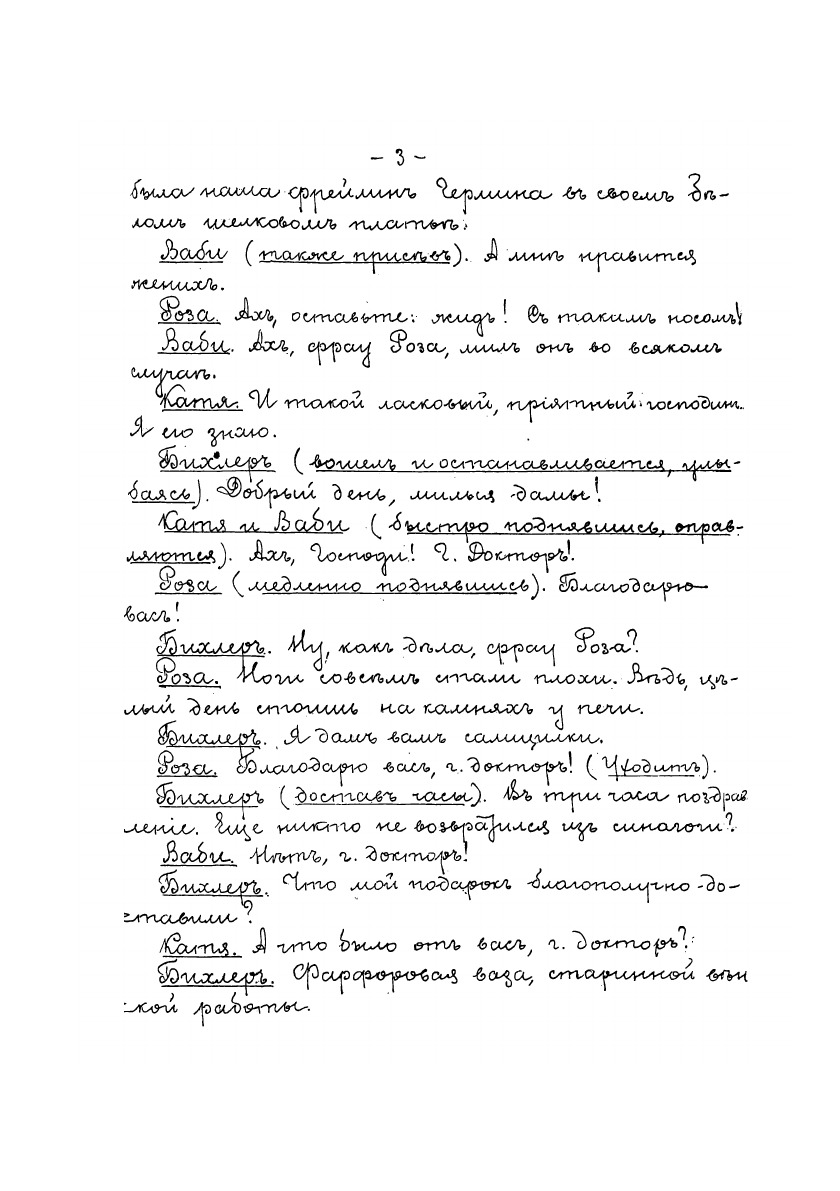 – 3 –
была наша фрейлинъ Гермина въ своемъ бѣ-
ломъ шелковомъ платьѣ.
Ваби (также присѣвъ). А мнѣ нравится
женихъ.
Роза. Ахъ, оставьте: жидъ! Съ такимъ носомъ!
Ваби. Ахъ, фрау Роза, милъ онъ во всякомъ
случаѣ.
Катя. И такой ласковый, пріятный господин
Я его знаю.
Бихлеръ (вошелъ и останавливается, улы-
баясь). Добрый день, милыя дамы!
Катя и Ваби (быстро поднявшись, оправ-
ляются). Ахъ, Господи! Г. Докторъ!
Роза (медленно поднявшись). Благодарю
васъ!
Бихлеръ. Ну, какъ дѣла, фрау Роза?
Роза. Ноги совсѣмъ стали плохи. Вѣдь, цѣ-
лый день стоишь на камняхъ у печи.
Бихлеръ. Я дамъ вамъ салицилки.
Роза. Благодарю васъ, г. докторъ! (Уходитъ).
Бихлеръ (доставъ часы). Въ три часа поздрав
леніе. Еще никто не возвратился изъ синагоги?
Ваби. Нѣтъ, г. докторъ!
Бихлеръ. Что мой подарокъ благополучно до-
ставили?
Катя. А что было отъ васъ, г. докторъ?
Бихлеръ. Фарфоровая ваза, старинной вѣн
ской работы.